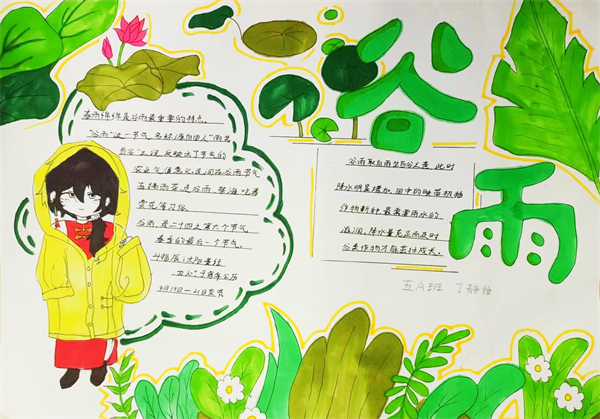 谷
雨
春雨绵绵是谷雨最重要的特点
"谷雨"这一节气,名称源自古人"雨生
百谷"之说,反映出了节气的
农业气候意义。民间在谷雨节气
有摘谷雨茶是谷雨、祭海、吃香
赏花等习俗。
谷雨,是二十四之第六个节气,
春季的最后一个节气。
斗指辰;太阳黄经
为30°;于每年公历
4月19日—21日交节
谷雨取自雨生百谷之意,此时
降水明显增加,田中的秧苗初插
作物新种,最需要雨水的
滋润,降水量充足而及时
谷类作物才能茁壮成长。
五A班 丁静怡